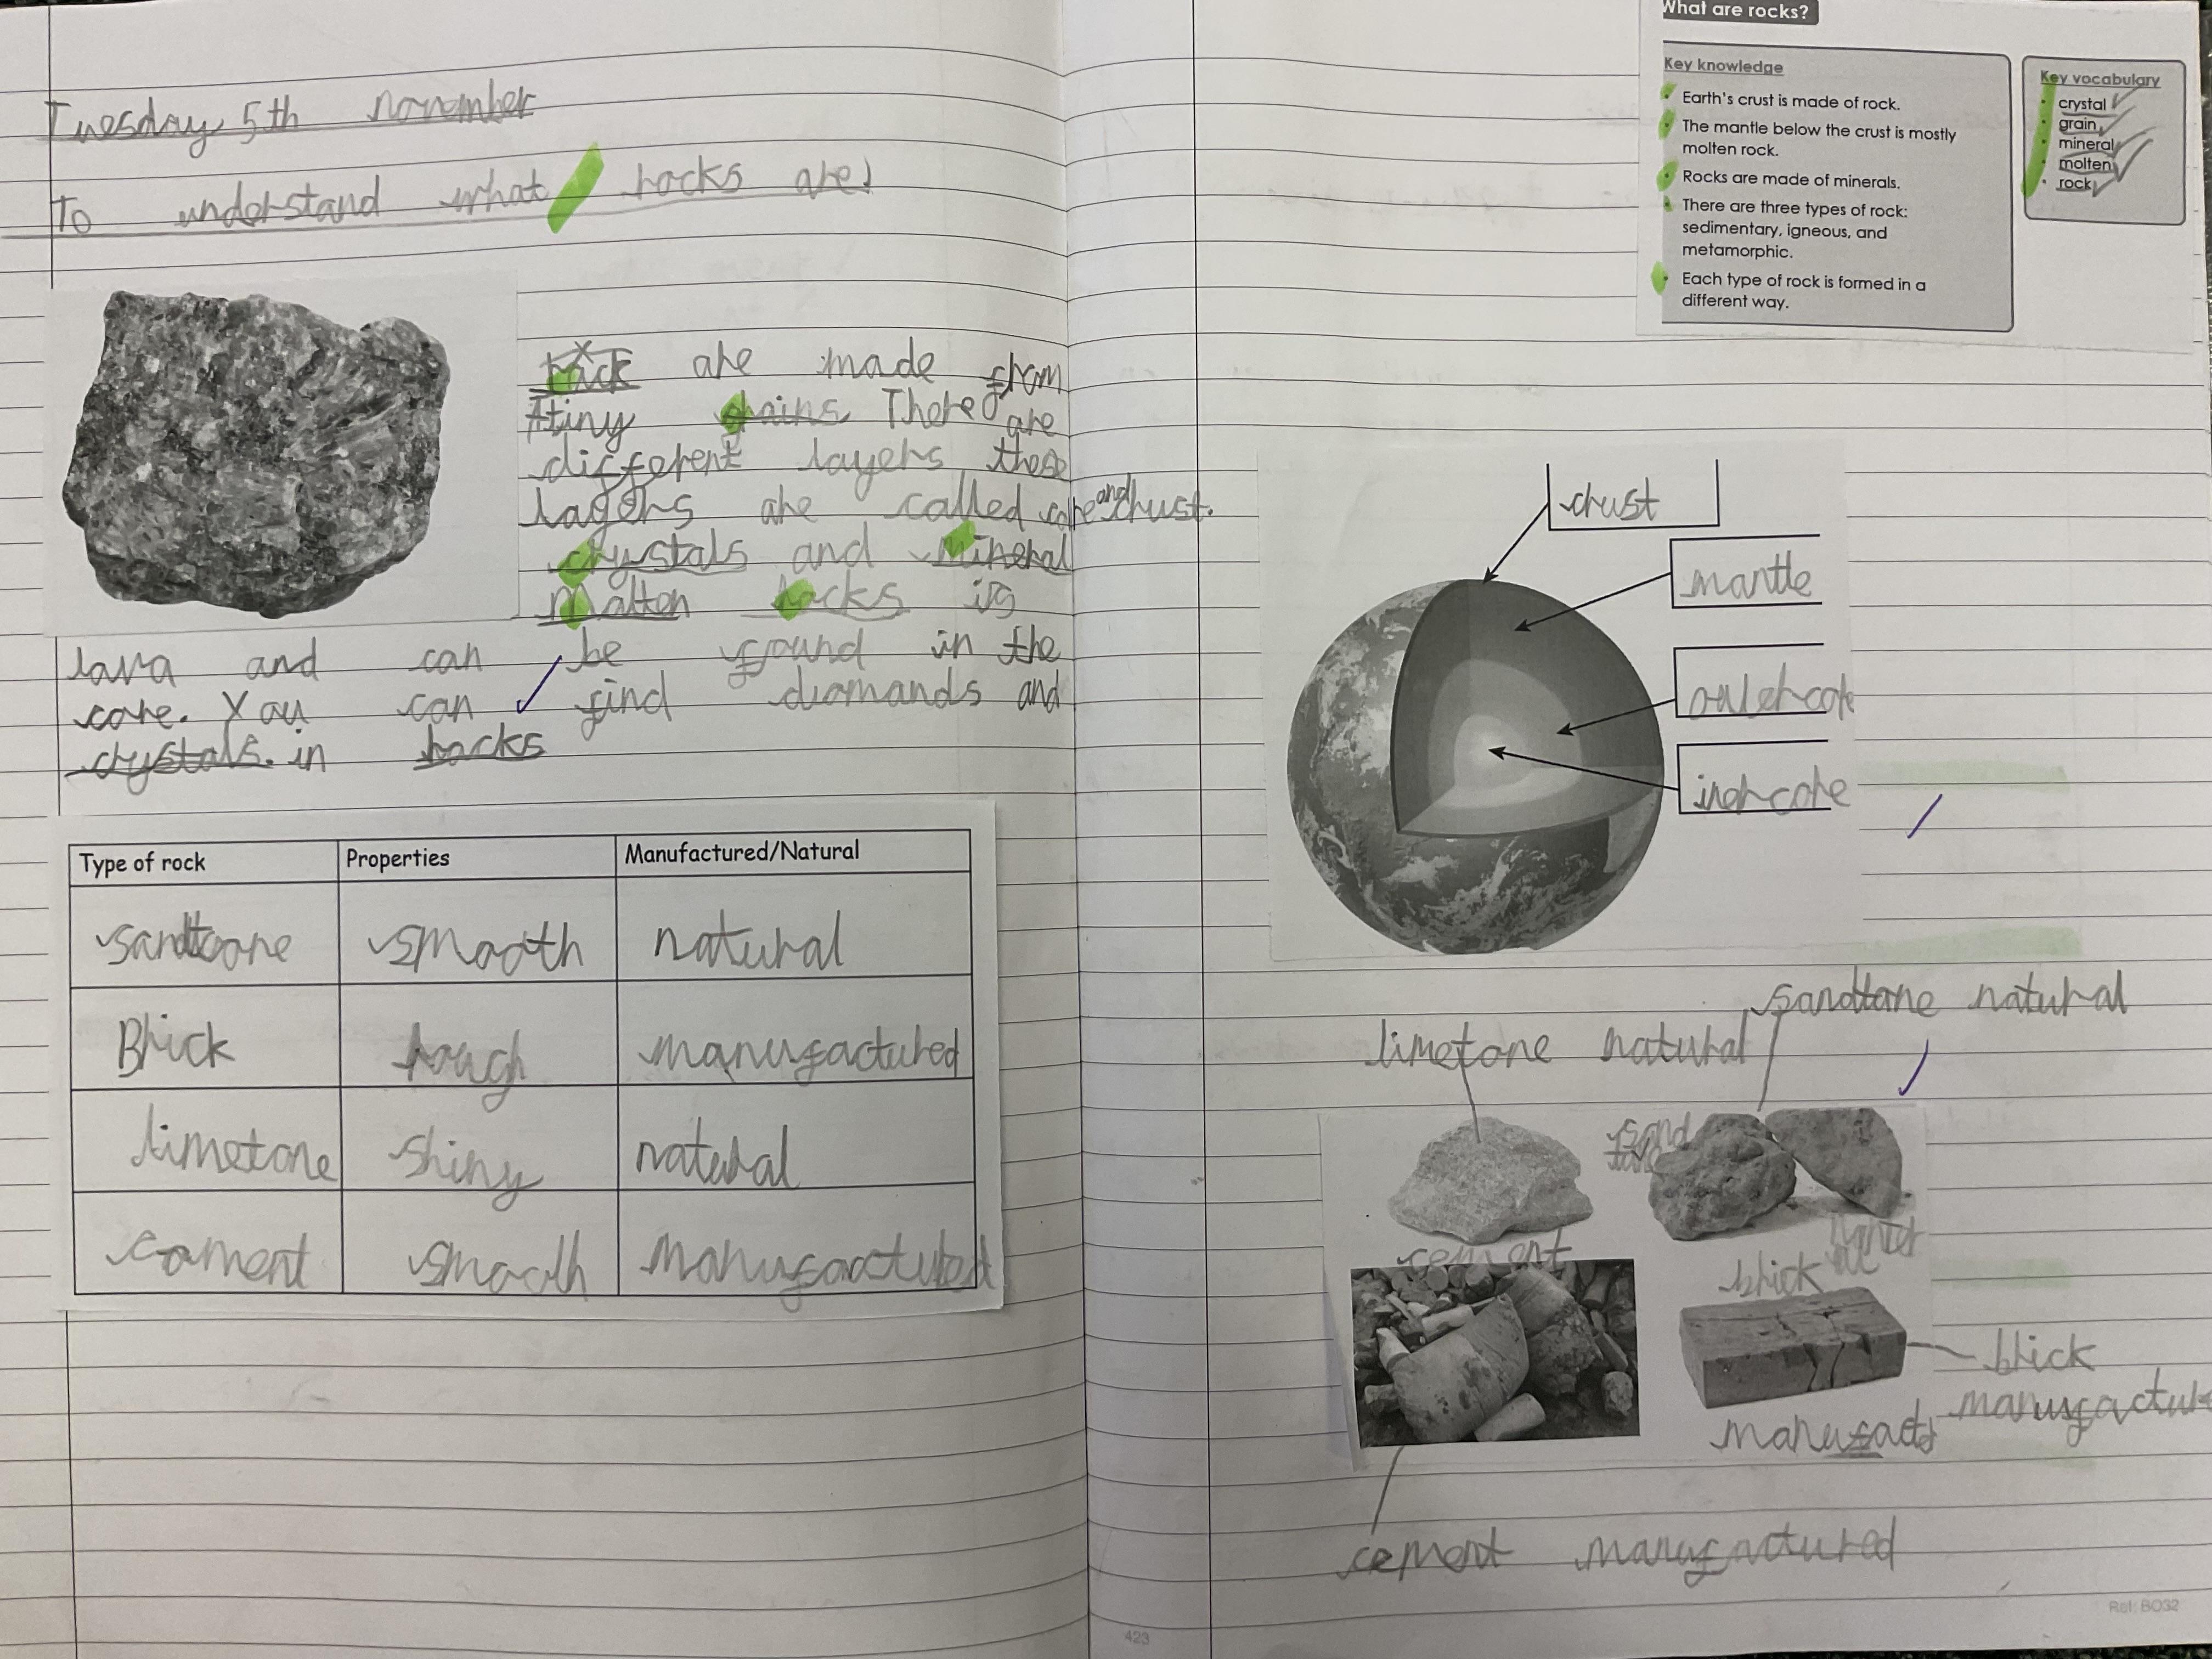 Tuesday 5th november
To understand what rocks are.
rock are made from
tiny grains There are
different layers these
layers are called core and crust.
crystals and mineral
Molten rocks is
lava and can be found in the
core. You can find diamands and
crystals. in rocks
Type of rock Properties Manufactured/Natural
sandtone smooth natural
Brick rough manufactured
limetone shiny natural
cement smooth manufactured
423
What are rocks?
Key knowledge
• Earth's crust is made of rock.
• The mantle below the crust is mostly
molten rock.
• Rocks are made of minerals.
• There are three types of rock:
sedimentary, igneous, and
metamorphic.
• Each type of rock is formed in a
different way.
Key vocabulary
• crystal
• grain
• mineral
• molten
• rock
crust
mantle
outer core
iner core
sandtone natural
limetone natural
sand
cement
brick
brick
manufactur
manufact
cement manufactured
Ref: BO32